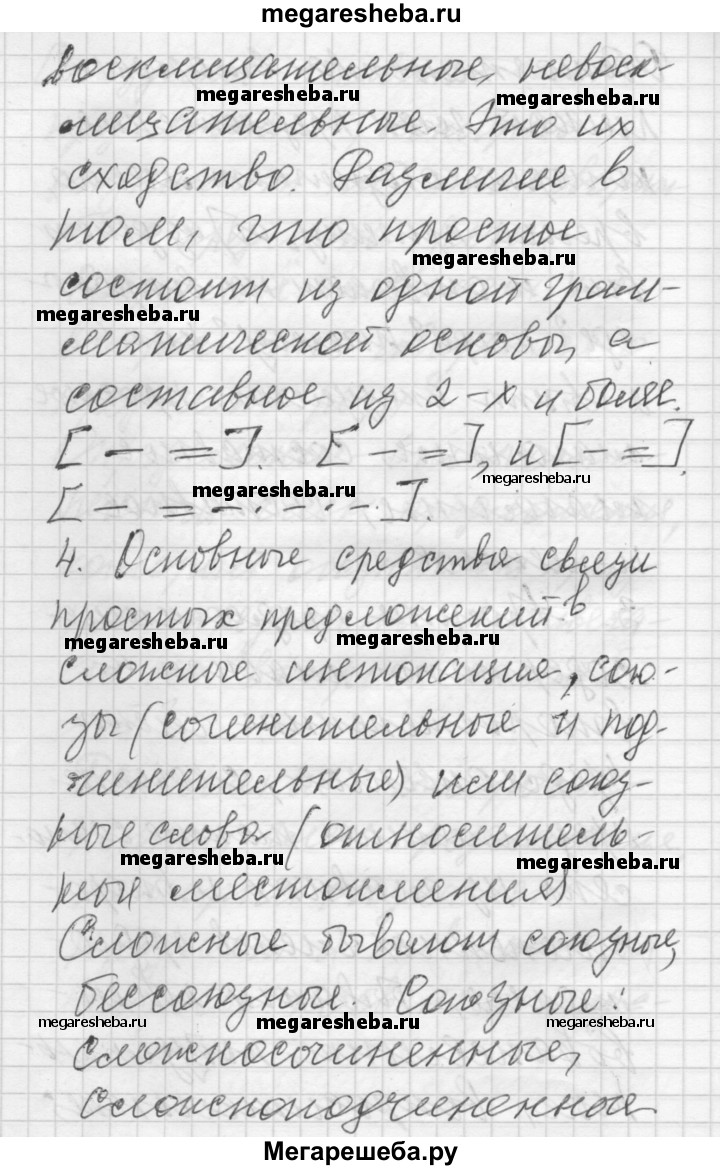 megaresheba.ru
восклицательные, невоск-
megaresheba.ru megaresheba.ru
лицательные. Это их
сходство. Различие в
том, что простое
megaresheba.ru
состоит из одной грам-
megaresheba.ru
матической основы, а
составное из 2-х и более.
[— =]. [— =], и [— =].
megaresheba.ru megaresheba.ru
[— = — · — · — · ].
4. Основные средства связи
простых предложений в
megaresheba.ru megaresheba.ru
сложные интонация, сою-
зы (сочинительные и под-
чинительные) или союз-
ные слова (относитель-
megaresheba.ru megaresheba.ru
ные местоимения)
Сложные бывают союзные,
бессоюзные. Союзные:
megaresheba.ru megaresheba.ru megaresheba.ru
сложносочиненные,
сложноподчиненные
Мегарешеба.ру